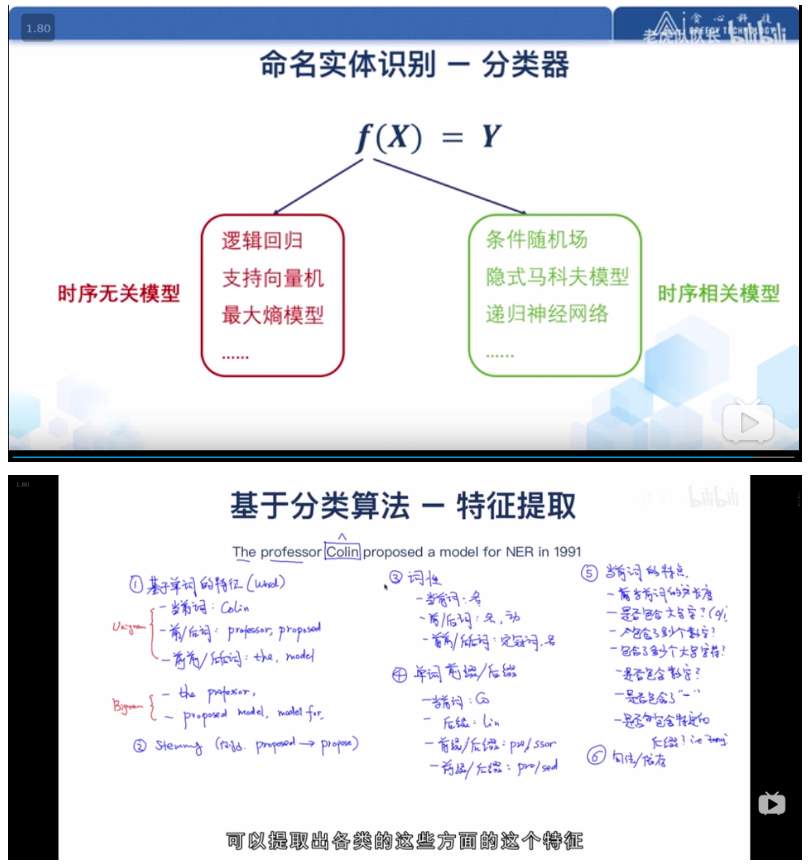 1.80
贪心科技
GREEDY TECHNOLOGY
老虎队队长 bilibili
命名实体识别 — 分类器
f(X) = Y
逻辑回归
支持向量机
最大熵模型
......
时序无关模型
条件随机场
隐式马科夫模型
递归神经网络
......
时序相关模型
1.80
bilibili
基于分类算法 — 特征提取
The professor Colin proposed a model for NER in 1991
① 基于单词的特征 (Word)
Unigram
- 当前词: Colin
- 前/后词: professor, proposed
- 前前/后后词: the, model
Bigram
- the professor,
- proposed model, model for,
② Stemming proposed → propose)
③ 词性
- 当前词: 名
- 前/后词: 名, 动
- 前前/后后词: 定冠词, 名
④ 单词前缀/后缀
- 当前词: Co
- 后缀: lin
- 前缀/后缀: pro/ssor
- 前缀/后缀: pro/sed
⑤ 当前词的特点
- 当前词的长度
- 是否包含大写字?
- 包含了多少个数字?
- 包含了多少个大写字符?
- 是否包含数字?
- 是否包含了"-"
- 是否包含特定的
后缀? i.e
⑥ 句法/依存
可以提取出各类的这些方面的这个特征